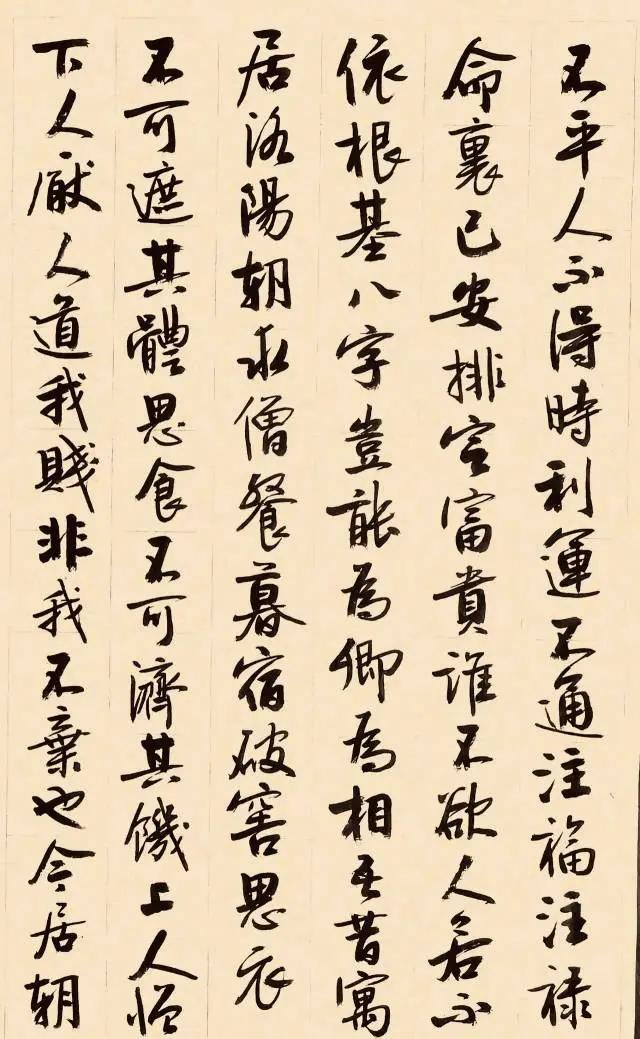 不平人不得時利運不通注福注禄
命裏已安排定富貴誰不欲人若不
依根基八字豈能為卿為相吾昔寓
居洛陽朝求僧餐暮宿破窖思衣
不可遮其體思食不可濟其饑上人憎
下人厭人道我賤非我不棄也今居朝